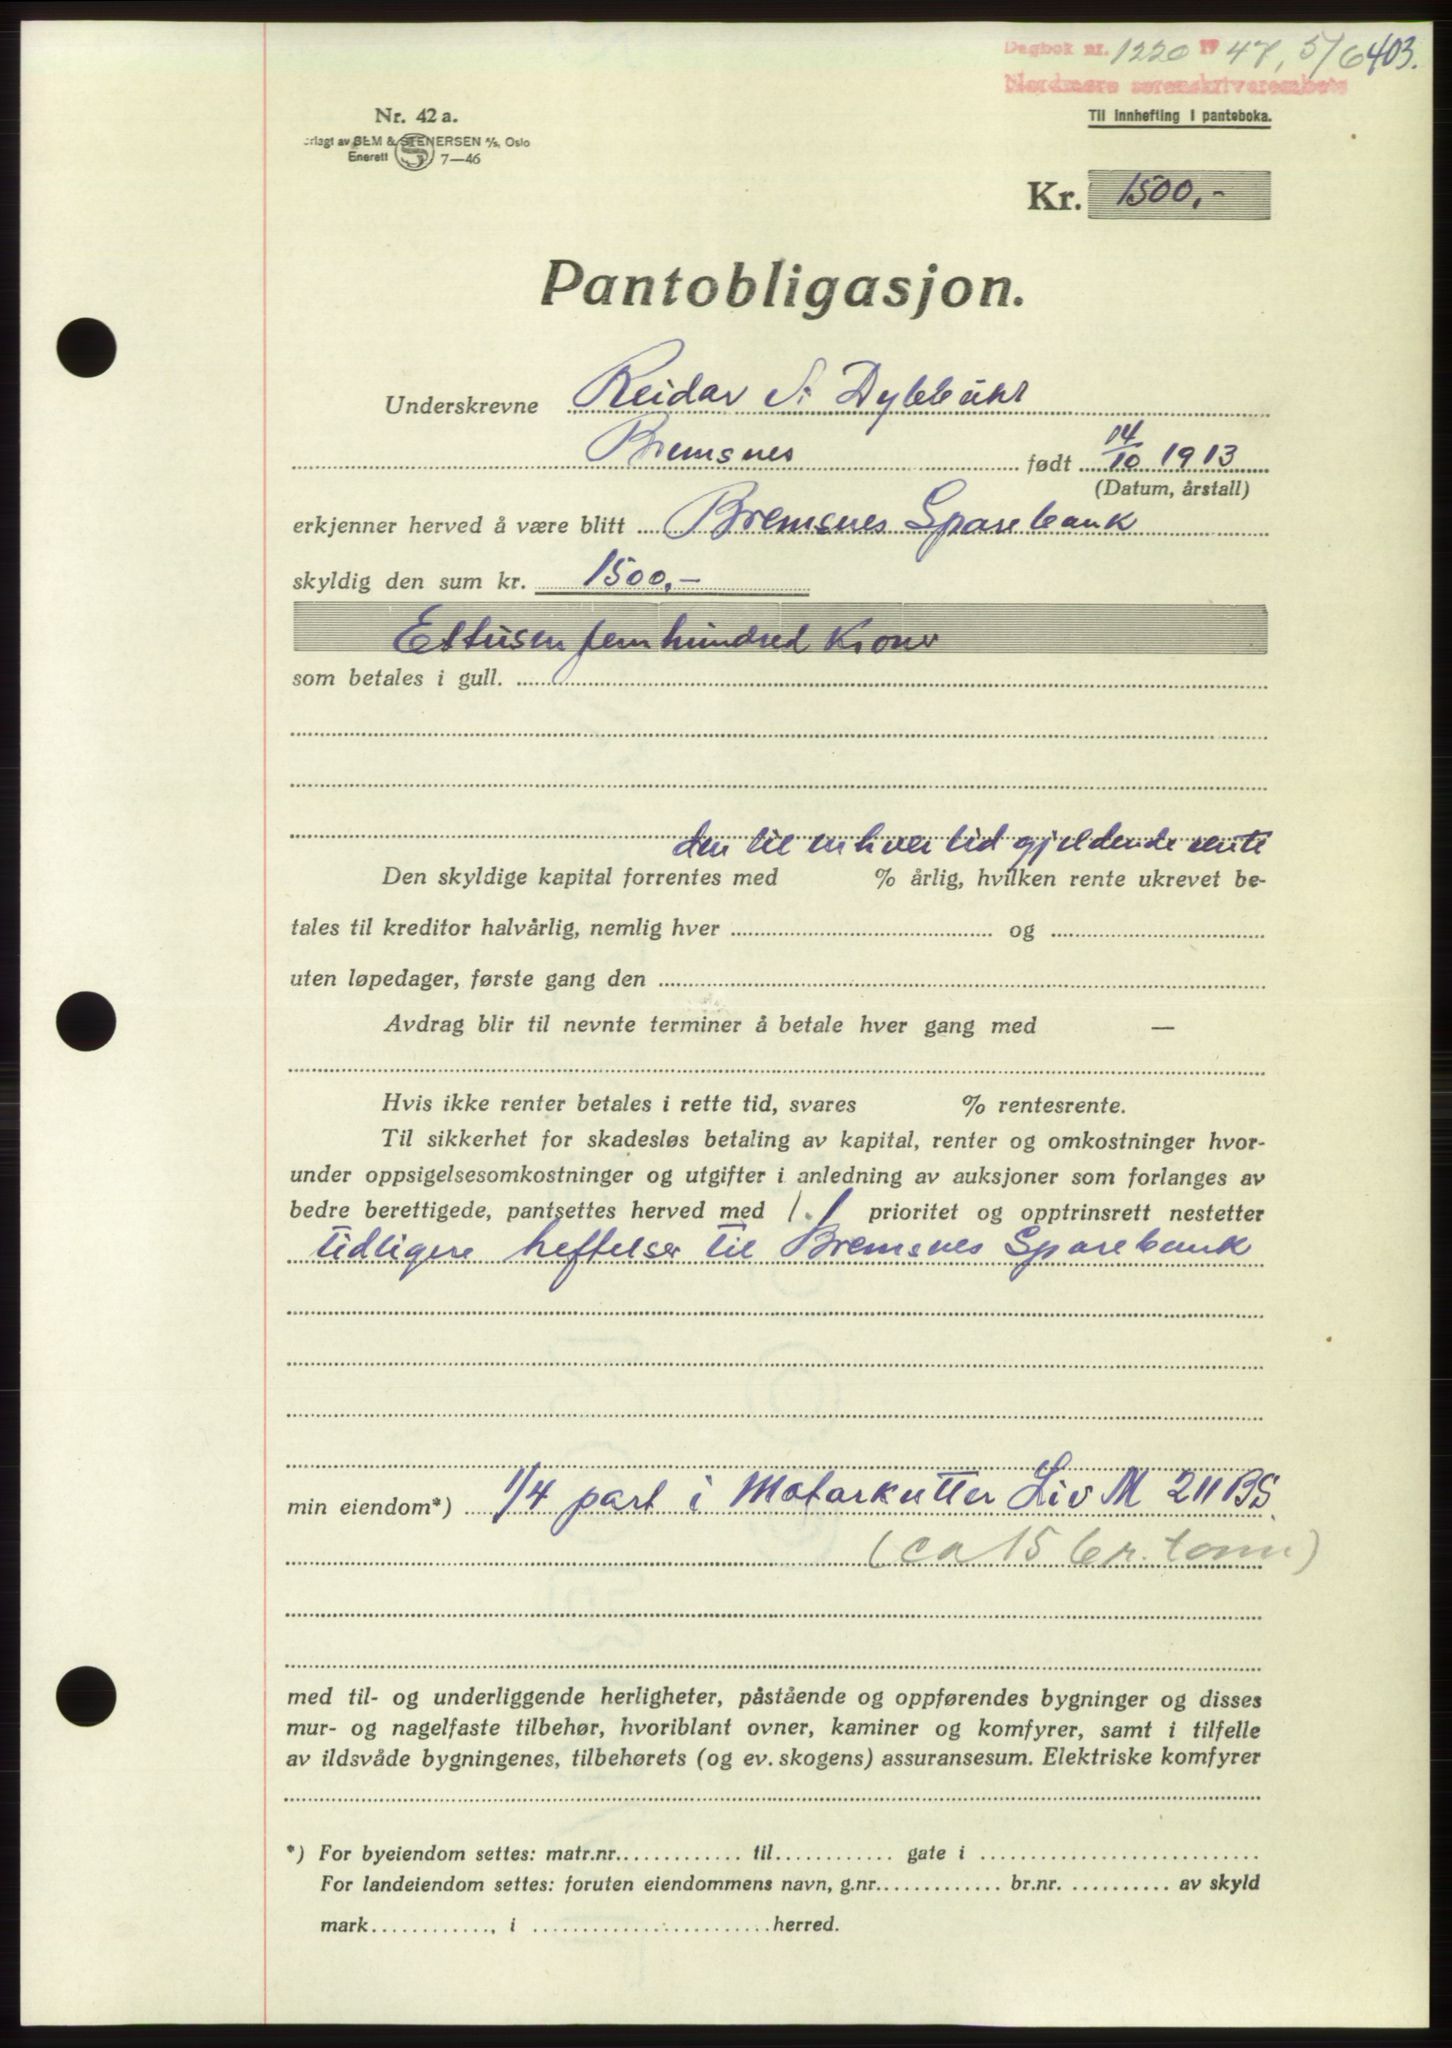 Dagbok nr. 1220 1947, 5/6 403.
Nordmøre sorenskriverembete
Nr. 42 a.
Til innhefting i panteboka.
erlagt av SEM & STENERSEN A/S, Oslo
Enerett S 7—46
Kr. 1500,-
Pantobligasjon.
Underskrevne Reidar S. Dybbuhl
Bremsnes født 14/10 1913
(Datum, årstall)
erkjenner herved å være blitt Bremsnes Sparebank
skyldig den sum kr. 1500,-
Ettusen femhundred Kroner
som betales i gull.
den til enhver tid gjeldende rente
Den skyldige kapital forrentes med % årlig, hvilken rente ukrevet be-
tales til kreditor halvårlig, nemlig hver og
uten løpedager, første gang den
Avdrag blir til nevnte terminer å betale hver gang med —
Hvis ikke renter betales i rette tid, svares % rentesrente.
Til sikkerhet for skadesløs betaling av kapital, renter og omkostninger hvor-
under oppsigelsesomkostninger og utgifter i anledning av auksjoner som forlanges av
bedre berettigede, pantsettes herved med 1. prioritet og opptrinsrett nestetter
tidligere heftelser til Bremsnes Sparebank
min eiendom*) 1/4 part i Motorkutter Liv M 211 BS.
(ca 15 br. tonn)
med til- og underliggende herligheter, påstående og oppførendes bygninger og disses
mur- og nagelfaste tilbehør, hvoriblant ovner, kaminer og komfyrer, samt i tilfelle
av ildsvåde bygningenes, tilbehørets (og ev. skogens) assuransesum. Elektriske komfyrer
*) For byeiendom settes: matr.nr. til gate i
For landeiendom settes: foruten eiendommens navn, g.nr. br.nr. av skyld
mark , i herred.